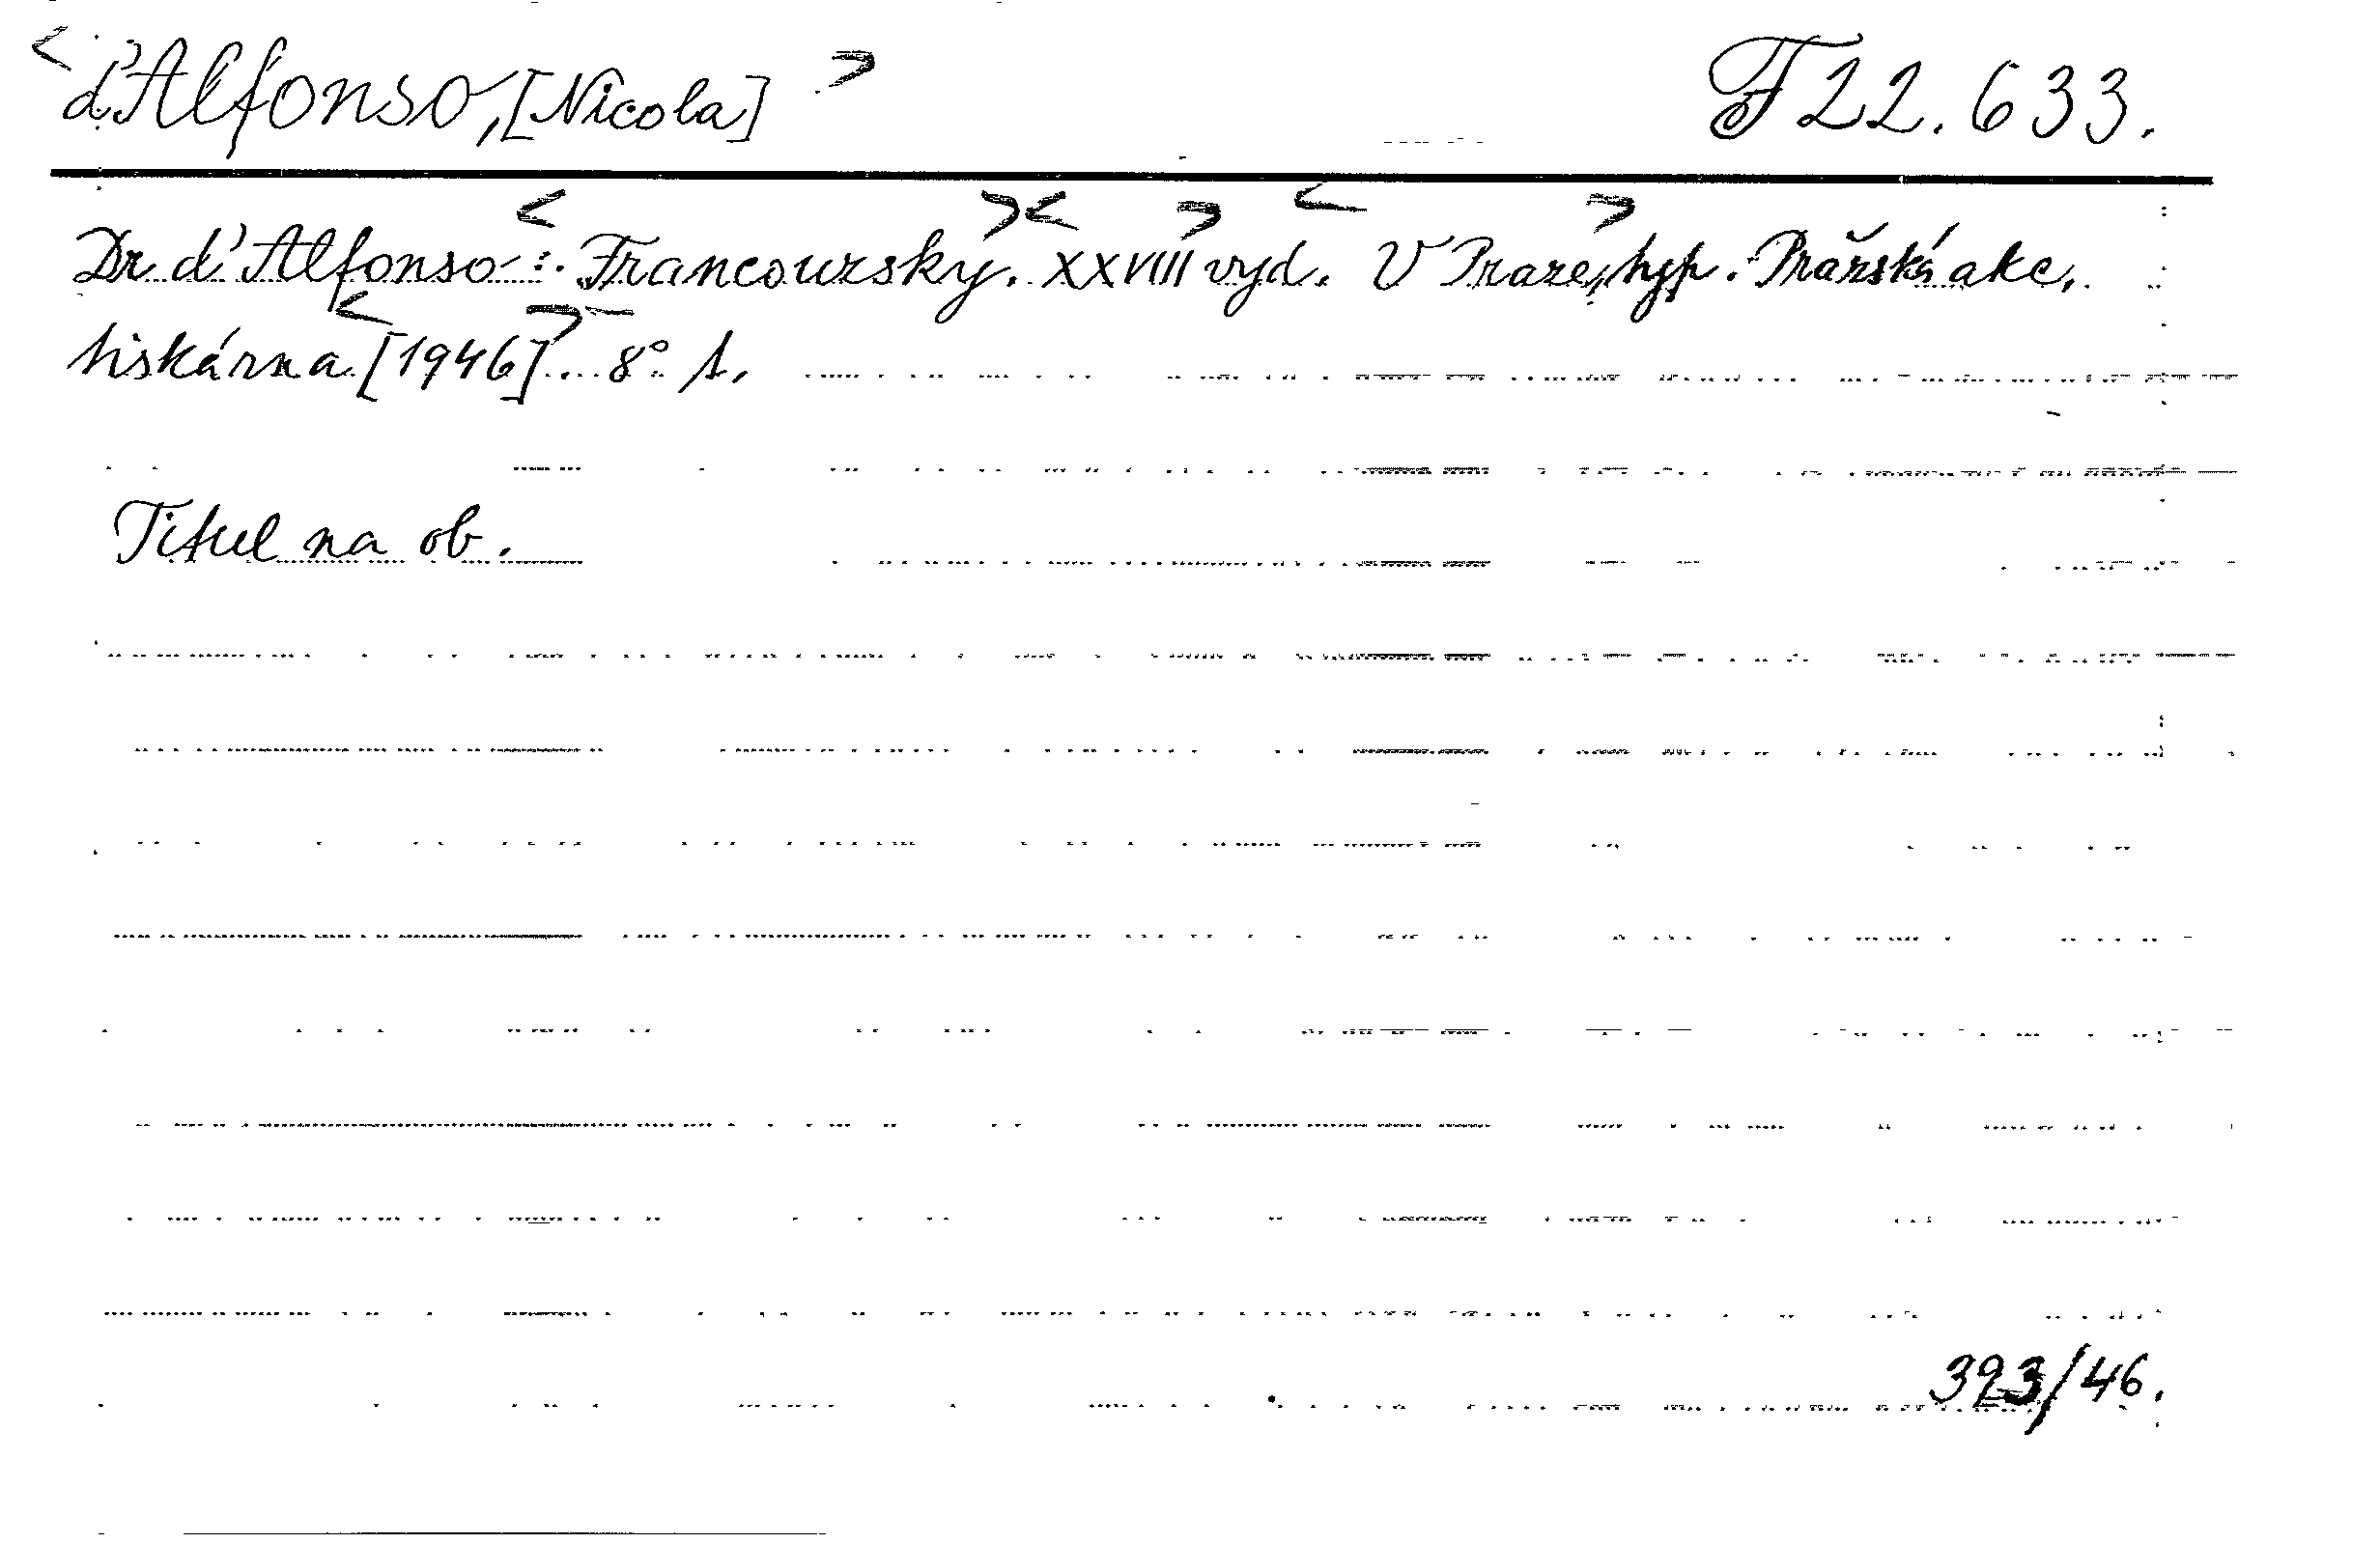 d'Alfonso, [Nicola] F 22.633.
Dr d'Alfonso: Francouzsky. XXVIII vyd. V Praze, typ. Pražská akc.
tiskárna [1946]. 8° s.
Titul na ob.
393/46.